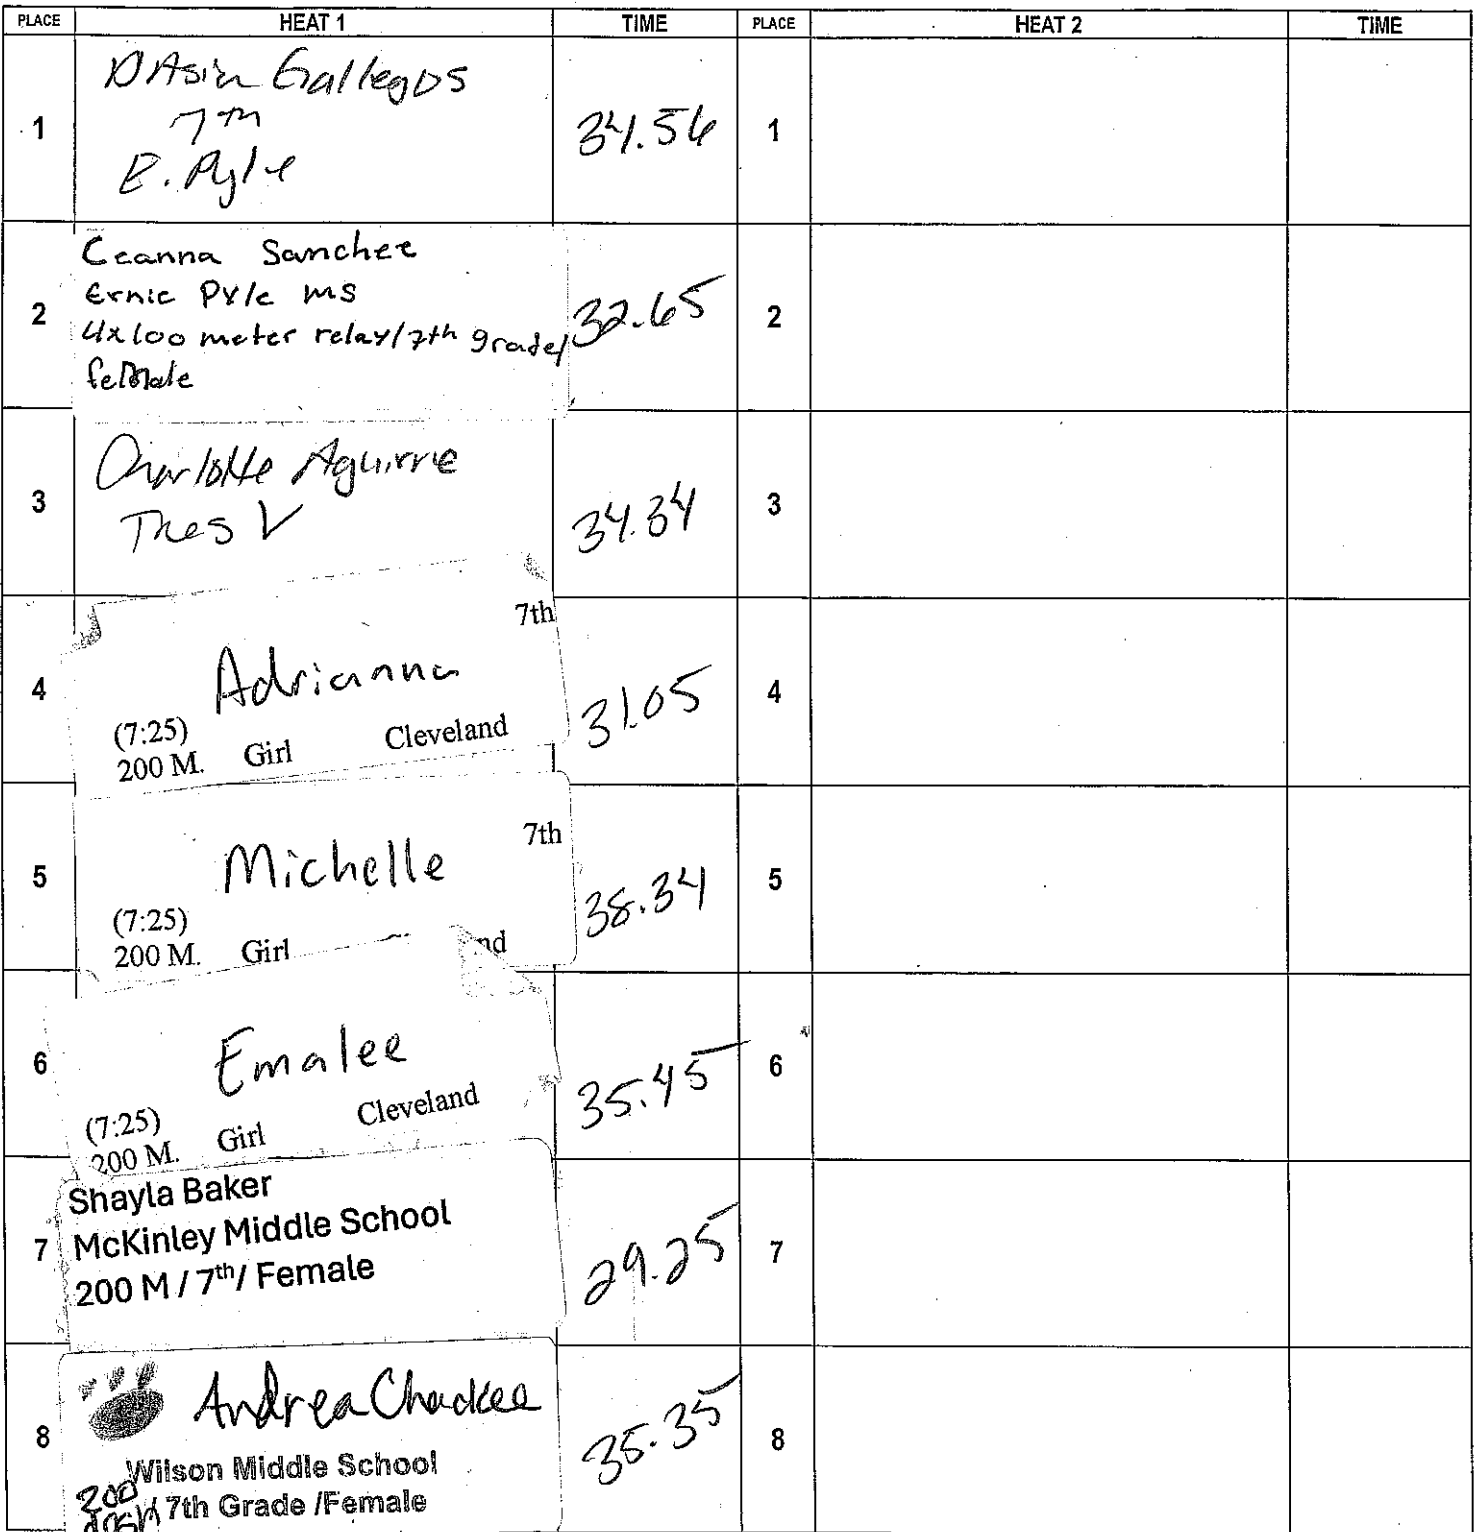 PLACE HEAT 1 TIME PLACE HEAT 2 TIME
D'Asia Gallegos
7th
E. Pyle
1 34.56 1
Ceanna Sanchez
Ernie Pyle MS
4x100 meter relay/7th grade/
female
2 32.65 2
Charlotte Aguirre
Tres V
3 34.34 3
7th
Adrianna
(7:25)
200 M. Girl Cleveland
4 31.05 4
7th
Michelle
(7:25)
200 M. Girl nd
5 38.34 5
Emalee
(7:25)
200 M. Girl Cleveland
6 35.45 6
Shayla Baker
McKinley Middle School
200 M / 7th/ Female
7 29.25 7
Andrea Chackee
Wilson Middle School
200 dash 7th Grade /Female
8 35.35 8